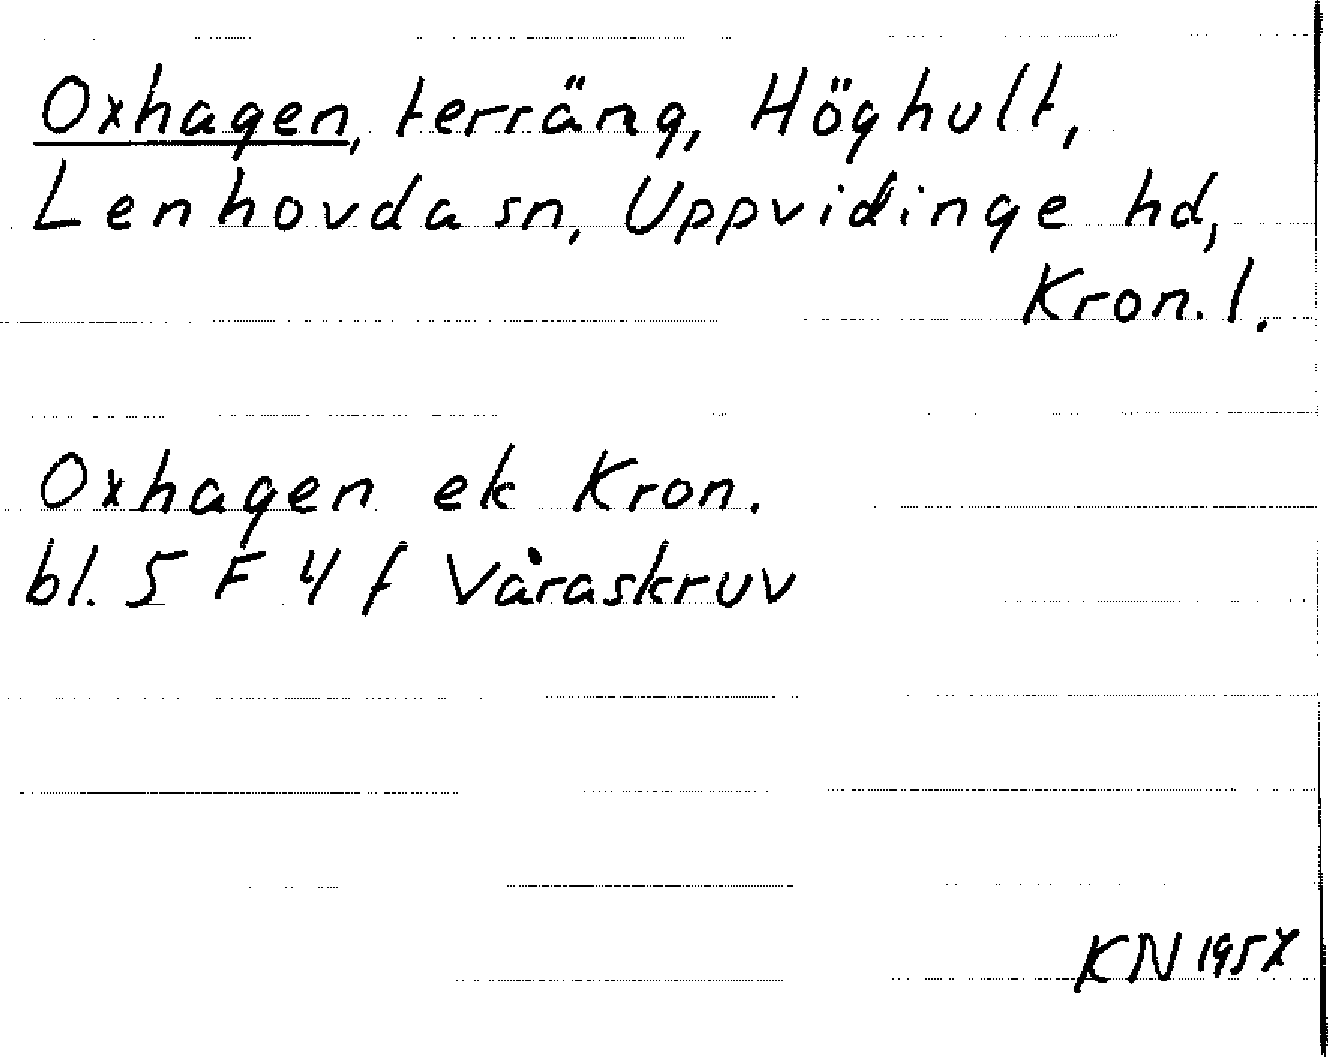 Oxhagen, terräng, Höghult,
Lenhovda sn, Uppvidinge hd,
Kron. l.
Oxhagen ek Kron.
bl. 5 F 4 f Våraskruv
KN 1957